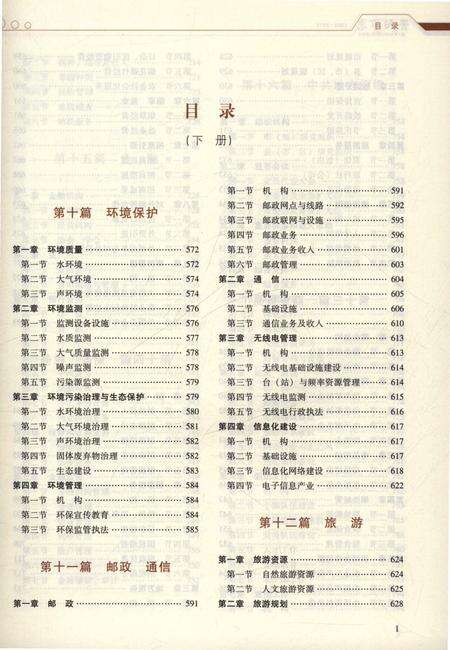 目录
目录
(下 册)
第十篇 环境保护
第一章 环境质量 572
第一节 水环境 572
第二节 大气环境 574
第三节 声环境 574
第二章 环境监测 576
第一节 监测设备设施 576
第二节 水质监测 577
第三节 大气质量监测 578
第四节 噪声监测 578
第五节 污染源监测 579
第三章 环境污染治理与生态保护 579
第一节 水环境治理 580
第二节 大气环境治理 581
第三节 声环境治理 582
第四节 固体废弃物治理 582
第五节 生态建设 583
第四章 环境管理 584
第一节 机 构 584
第二节 环保宣传教育 584
第三节 环保监管执法 585
第十一篇 邮政 通信
第一章 邮 政 591
第一节 机 构 591
第二节 邮政网点与线路 592
第三节 邮政联网与设施 595
第四节 邮政业务 596
第五节 邮政业务收入 601
第六节 邮政管理 603
第二章 通 信 604
第一节 机 构 605
第二节 基础设施 606
第三节 通信业务及收入 610
第三章 无线电管理 613
第一节 机 构 613
第二节 无线电基础设施建设 614
第三节 台(站)与频率资源管理 614
第四节 无线电监测 615
第五节 无线电行政执法 616
第四章 信息化建设 617
第一节 机 构 617
第二节 基础设施 617
第三节 信息化网络建设 618
第四节 电子信息产业 622
第十二篇 旅 游
第一章 旅游资源 624
第一节 自然旅游资源 624
第二节 人文旅游资源 625
第二章 旅游规划 628
1